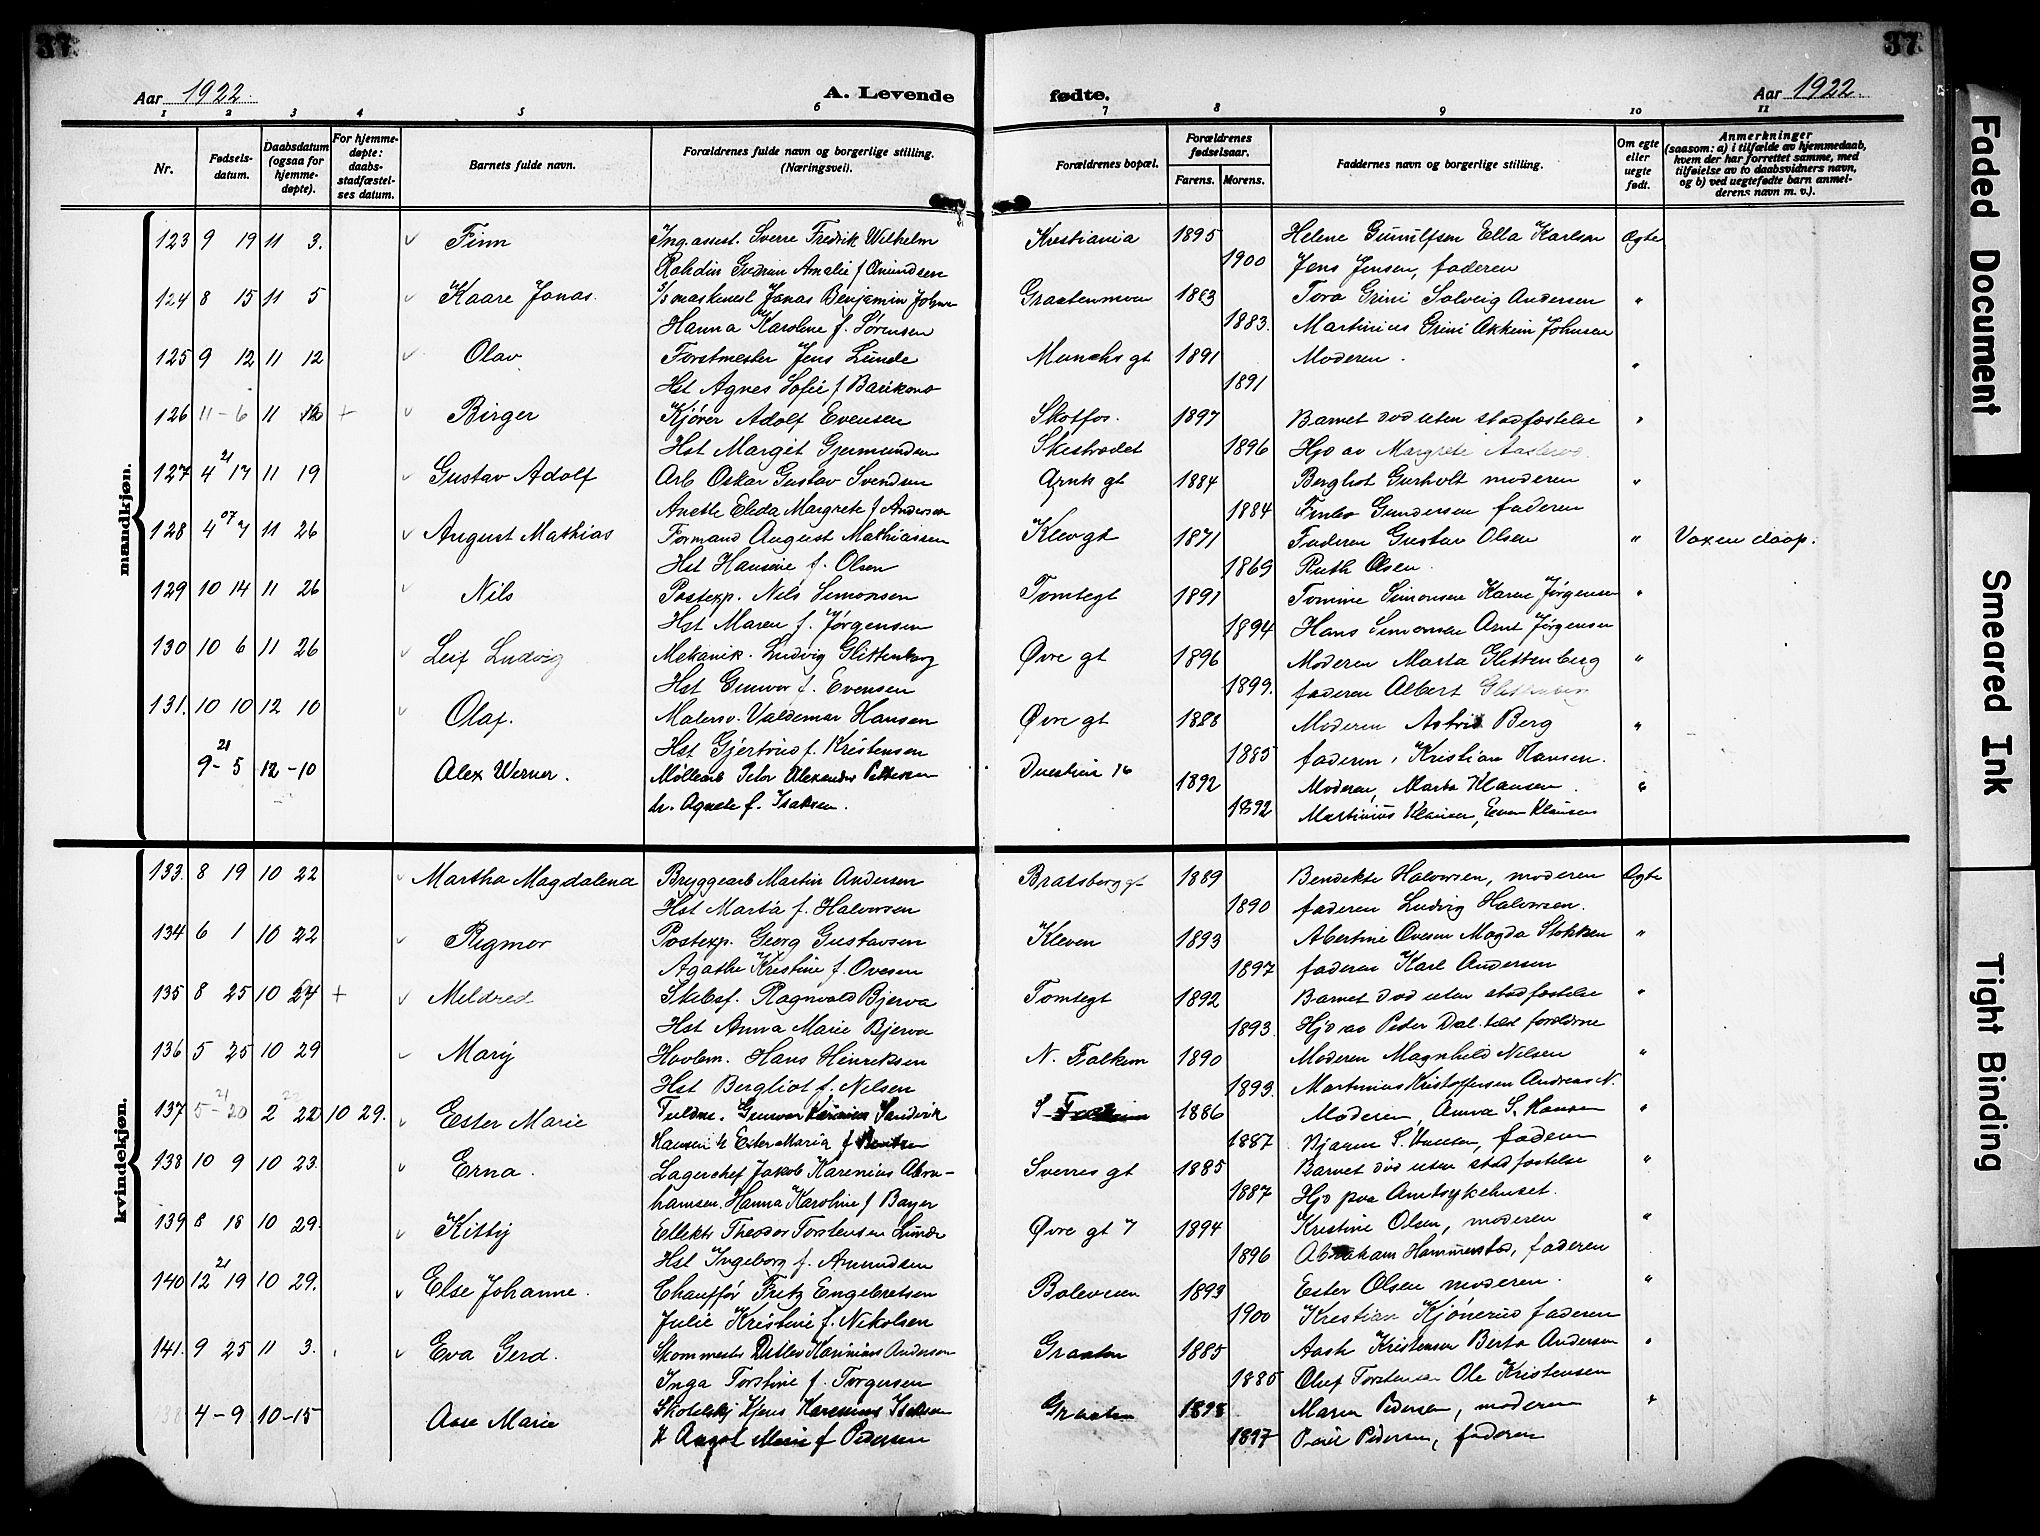 37
37
Aar 1922.
A. Levende fødte.
Aar 1922.
1 2 3 4 5 6 7 8 9 10 11
Nr.
Fødsels-
datum.
Daabsdatum
(ogsaa for
hjemme-
døpte).
For hjemme-
døpte:
daabs-
stadfæstel-
ses datum.
Barnets fulde navn.
Forældrenes fulde navn og borgerlige stilling.
(Næringsvei).
Forældrenes bopæl.
Forældrenes
fødselsaar.
Farens. Morens.
Faddernes navn og borgerlige stilling.
Om egte
eller
uegte
født.
Anmerkninger
(saasom: a) i tilfælde av hjemmedaab,
hvem der har forrettet samme, med
tilføielse av to daabsvidners navn,
og b) ved uegtefødte barn anmel-
derens navn m. v.).
mandkjøn.
123 9 19 11 3. Finn Ing.assist. Sverre Fredrik Wilhelm Kristiania 1895 Helene Gunulfsen Ella Karlsen Egte
Rohdin Gudrun Amalie f Amundsen 1900 Jens Jensen, faderen
124 8 15 11 5 Kaare Jonas. Jonas Benjamin Johns Graatenmoen 1883 Tora Grini Solveig Andersen "
Hanna Karoline f. Sørensen 1883. Martinius Grini Johnsen
125 9 12 11 12 Olav Forstmester Jens Lunde Munchs gt 1891 Moderen. "
Hst Agnes Sofie f 1891
126 11-6 11 12 + Birger Kjører Adolf Evensen Skotfos. 1897 Barnet død uten stadfæstelse "
Hst Margit Gjermundsen Skistredet 1896 Hjd av Margrete
127 4 21 17 11 19 Gustav Adolf Arb Oskar Gustav Svendsen Arnts gt 1884 Bergliot Gurholt moderen "
Anette Elida Margrete f Andersen 1884 Gundersen faderen
128 4 07 7 11 26 August Mathias Formand August Mathiassen Klevgt 1871 Faderen Gustav Olsen " Voxen daap.
Hst Hansine f. Olsen 1869 Ruth Olsen.
129 10 14 11 26 Nils Postexp. Nils Simonsen Tomtegt 1891 Tomine Simonsen Karen Jørgensen "
Hst Maren f. Jørgensen 1894 Hans Simonsen Arnt Jørgensen
130 10 6 11 26 Leif Ludvig Mekanik. Ludvig Glittenberg Øvre gt 1896 Moderen Marta Glittenberg "
Hst Gunvor f. Evensen 1899. faderen Albert Glittenberg
131. 10 10 12 10 Olaf. Malersv. Valdemar Hansen Øvre gt 1888 Moderen Astrid Berg "
Hst Gjertrud f. Kristensen 1885 faderen, Kristian Hansen.
9-21 5 12-10 Alex Werner. Møllearb Peter Alexander Pettersen Duestien 16 1892 Moderen, Marta Klausen. "
h. Agnete f. Isaksen. 1892 Martinius Klausen, Even Klausen
kvindekjøn.
133. 8 19 10 22 Martha Magdalena Bryggearb Martin Andersen Bratsberggt 1889 Bendikte Halvorsen, moderen Egte
Hst Marta f. Halvorsen 1890 faderen Ludvig Halvorsen.
134 6 1 10 22 Rigmor Postexp. Georg Gustavsen Kleven 1893 Albertine Ovesen Magda Stokken "
Agathe Kristine f. Ovesen 1897 faderen Karl Andersen
135 8 25 10 24 + Mildred Skibsf. Ragnvald Bjerva Tomtegt 1892 Barnet død uten stadfæstelse "
Hst Anna Marie Bjerva 1893. Hjd av Peter Dal. forældrene
136 5 25 10 29 Mary Hovlem. Hans Henriksen N. Falkum 1890 Moderen Magnhild Nilsen "
Hst Bergliot f. Nilsen 1893. Martinius Kristoffersen Andreas N.
137 5-21 20 2 22 22 10 29. Ester Marie Fuldm. Gunvor Sandvik S. 1886 Moderen, Anna S. Hansen "
Hansen h Ester Maria f 1887 Bjarne S. Hansen, faderen
138 10 9 10 23. Erna. Lagerchef Jakob Karenius Abra- Sverres gt 1885 Barnet død uten stadfæstelse "
hamsen. Hanna Karoline f Bayer 1887 Hjd paa Amtsykehuset.
139 8 18 10 29. Kitty Elektr Theodor Torstensen Lunde Øvre gt 7 1894 Kristine Olsen, moderen "
Hst Ingeborg f. Amundsen 1896 Abraham Hammerstad, faderen
140 12 21 19 10 29. Else Johanne. Chauffør Fritz Engebretsen Boleveien 1893 Ester Olsen moderen. "
Julie Kristine f. Nikolsen 1900 Kristian Kjønerud faderen
141. 9 25 11 3. Eva Gerd. Skommester Ditlev Karinius Andersen Graaten 1885 Aash Kristensen Berta Andersen "
Inga Torstine f. Torgersen 1885 Oluf Torstensen Ole Kristensen
138 4-9 10-15 Aase Marie Kjens Karenius Isaksen Graaten 1898 Maren Pedersen, moderen "
h Aagot Marie f Pedersen 1897 Pedersen, faderen
Faded Document
Smeared Ink
Tight Binding